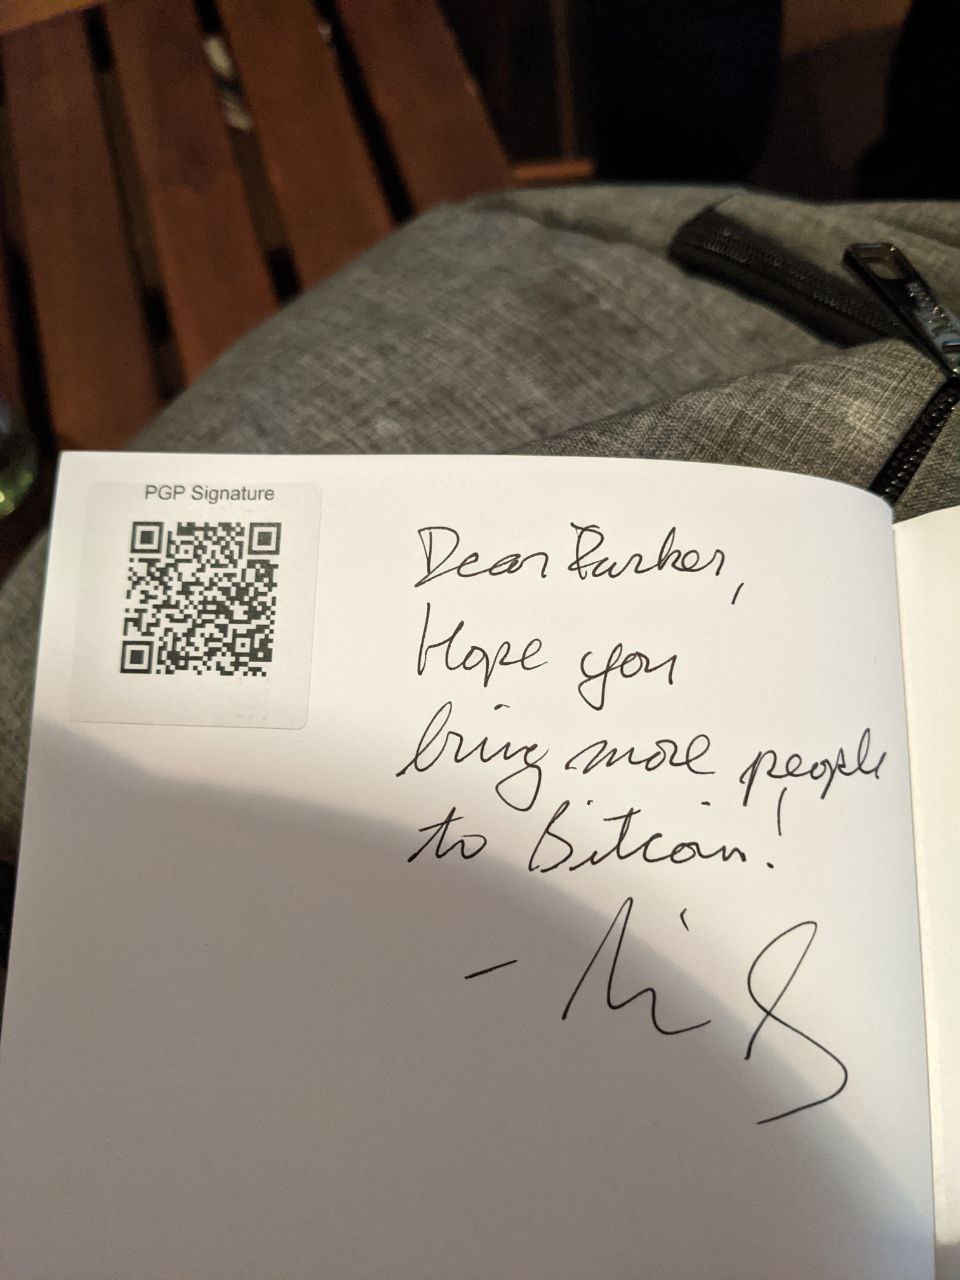 PGP Signature
Dear Parker,
Hope you
bring more people
to Bitcoin!